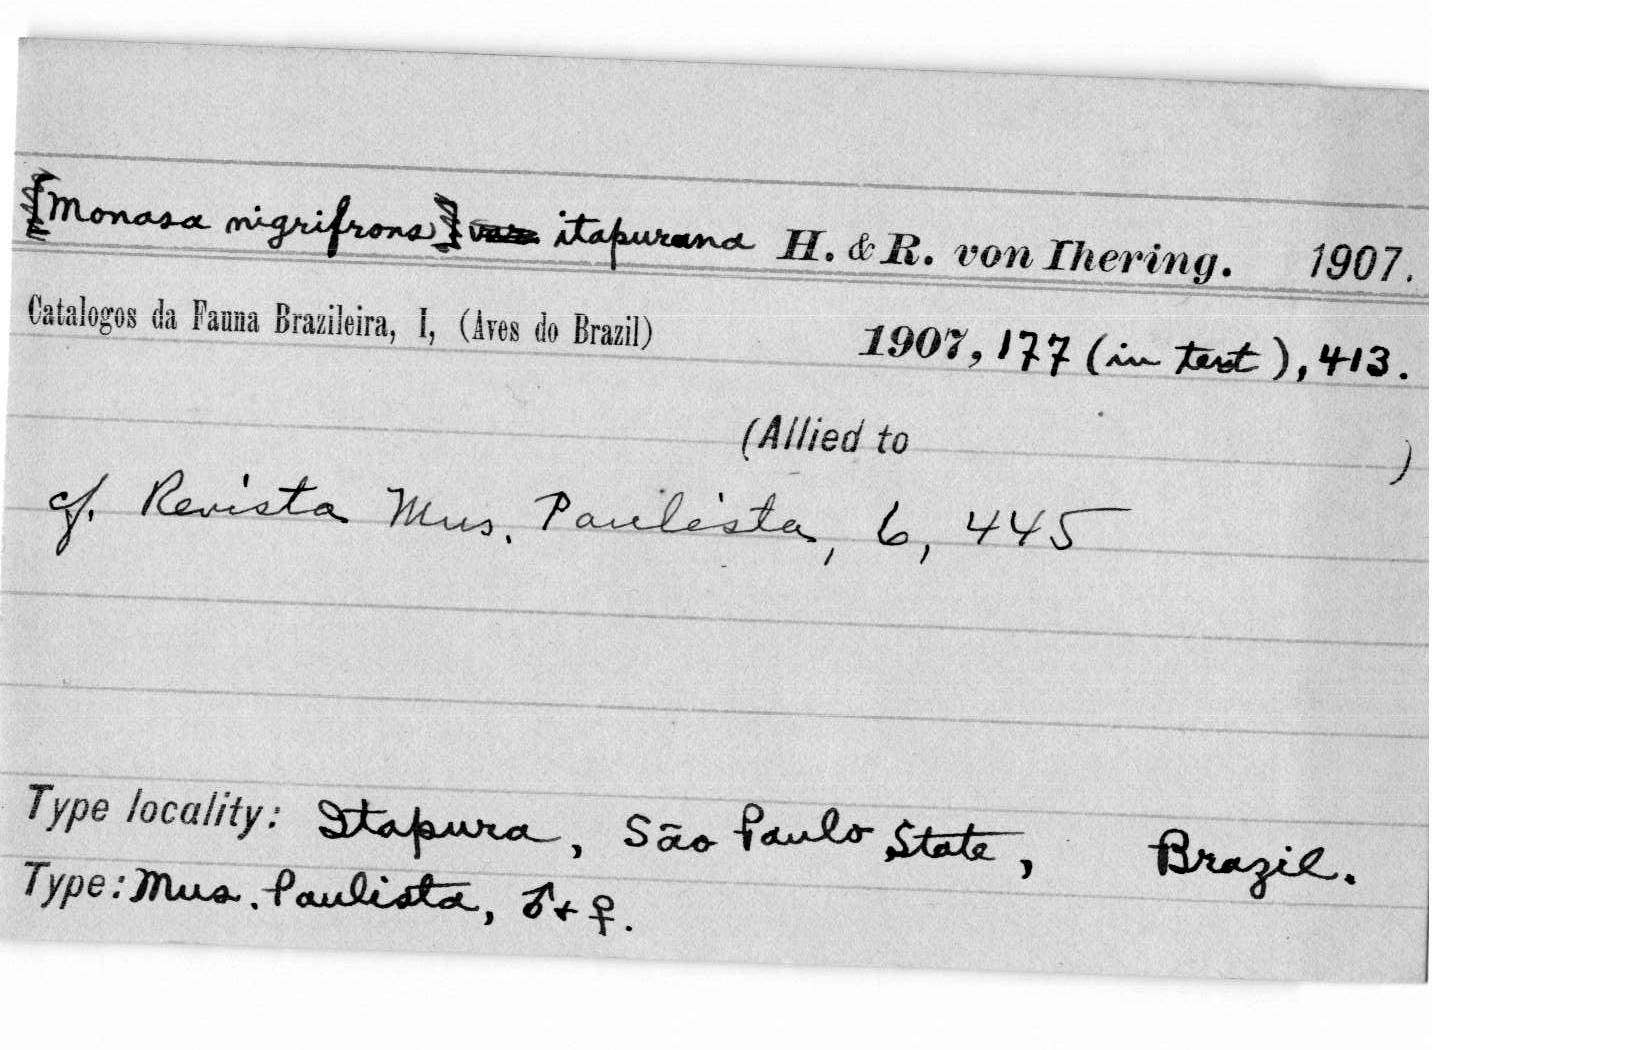 [Monasa nigrifrons] var. itapurana H. & R. von Ihering. 1907.
Catalogos da Fauna Brazileira, I, (Aves do Brazil) 1907, 177 (in text), 413.
(Allied to )
cf. Revista Mus. Paulista, 6, 445
Type locality: Itapura, São Paulo State, Brazil.
Type: Mus. Paulista, ♂ + ♀.